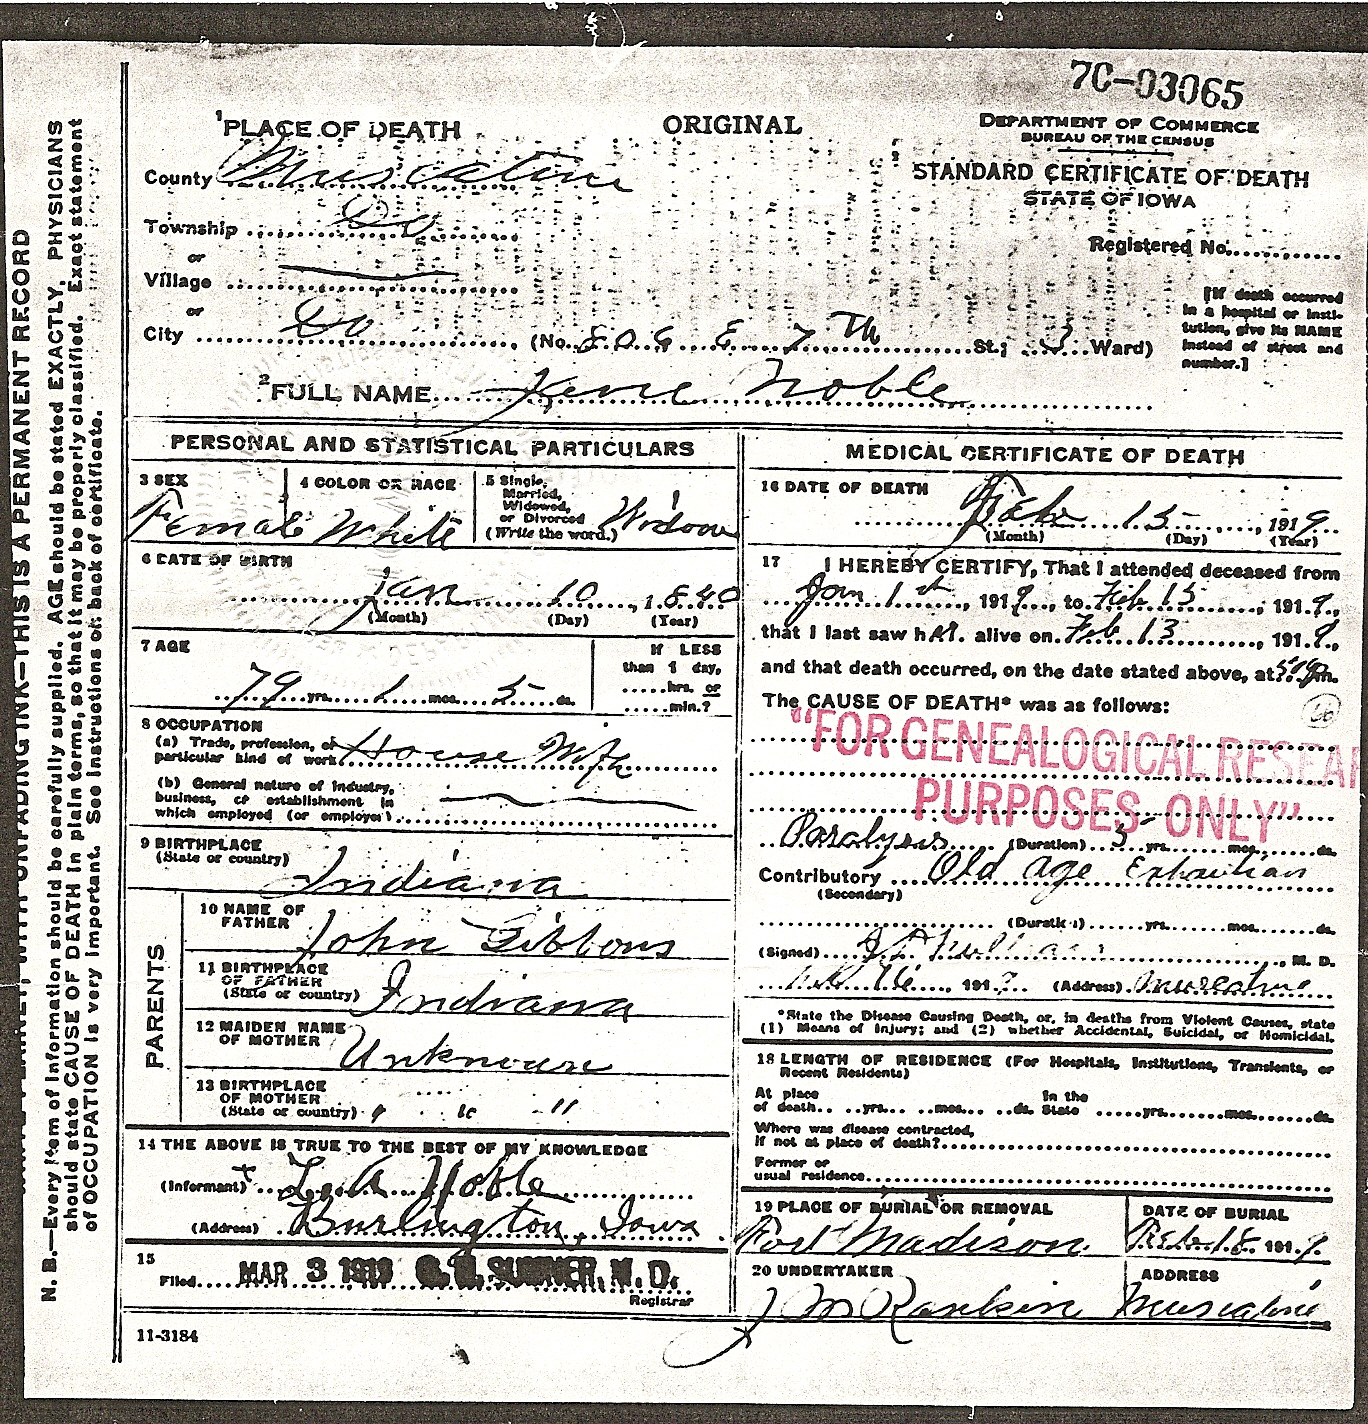 7C-03065
1 PLACE OF DEATH
ORIGINAL
DEPARTMENT OF COMMERCE
BUREAU OF THE CENSUS
STANDARD CERTIFICATE OF DEATH
STATE OF IOWA
County Muscatine
Township Do
Registered No.
or
Village
or
City Do (No. 806 E 7th St.; 3 Ward)
[If death occurred
in a hospital or insti-
tution, give its NAME
instead of street and
number.]
2 FULL NAME Jane Noble
PERSONAL AND STATISTICAL PARTICULARS
3 SEX
Female
4 COLOR OR RACE
White
5 Single,
Married,
Widowed,
or Divorced
(Write the word.)
Widow
6 DATE OF BIRTH
Jan 10, 1840
(Month) (Day) (Year)
7 AGE
79 yrs. 1 mos. 5 ds.
If LESS
than 1 day,
hrs. or
min.?
8 OCCUPATION
(a) Trade, profession, or
particular kind of work House Wife
(b) General nature of industry,
business, or establishment in
which employed (or employer)
9 BIRTHPLACE
(State or country)
Indiana
PARENTS
10 NAME OF
FATHER
John Gibbons
11 BIRTHPLACE
OF FATHER
(State or country)
Indiana
12 MAIDEN NAME
OF MOTHER
Unknown
13 BIRTHPLACE
OF MOTHER
(State or country) " " "
14 THE ABOVE IS TRUE TO THE BEST OF MY KNOWLEDGE
(Informant) L. A. Noble
(Address) Burlington, Iowa
15
Filed MAR 3 1919 SUMNER, M. D.
Registrar
11-3184
MEDICAL CERTIFICATE OF DEATH
16 DATE OF DEATH
Feb 15, 1919
(Month) (Day) (Year)
17 I HEREBY CERTIFY, That I attended deceased from
Jan 1st, 1919, to Feb 15, 1919,
that I last saw her alive on Feb 13, 1919,
and that death occurred, on the date stated above, at m.
The CAUSE OF DEATH* was as follows:
"FOR GENEALOGICAL RESEAR
PURPOSES ONLY"
Paralysis (Duration) 5 yrs. mos. ds.
Contributory Old age Exhaustion
(Secondary)
(Duration) yrs. mos. ds.
(Signed) , M. D.
Feb 16, 1919 (Address) Muscatine
*State the Disease Causing Death, or, in deaths from Violent Causes, state
(1) Means of Injury; and (2) whether Accidental, Suicidal, or Homicidal.
18 LENGTH OF RESIDENCE (For Hospitals, Institutions, Transients, or
Recent Residents)
At place
of death yrs. mos. ds.
In the
State yrs. mos. ds.
Where was disease contracted,
if not at place of death?
Former or
usual residence
19 PLACE OF BURIAL OR REMOVAL
Fort Madison
DATE OF BURIAL
Feb 18 1919
20 UNDERTAKER
J M Rankin
ADDRESS
Muscatine
N. B.—Every item of information should be carefully supplied. AGE should be stated EXACTLY. PHYSICIANS
should state CAUSE OF DEATH in plain terms, so that it may be properly classified. Exact statement
of OCCUPATION is very important. See instructions on back of certificate.
WITH UNFADING INK—THIS IS A PERMANENT RECORD